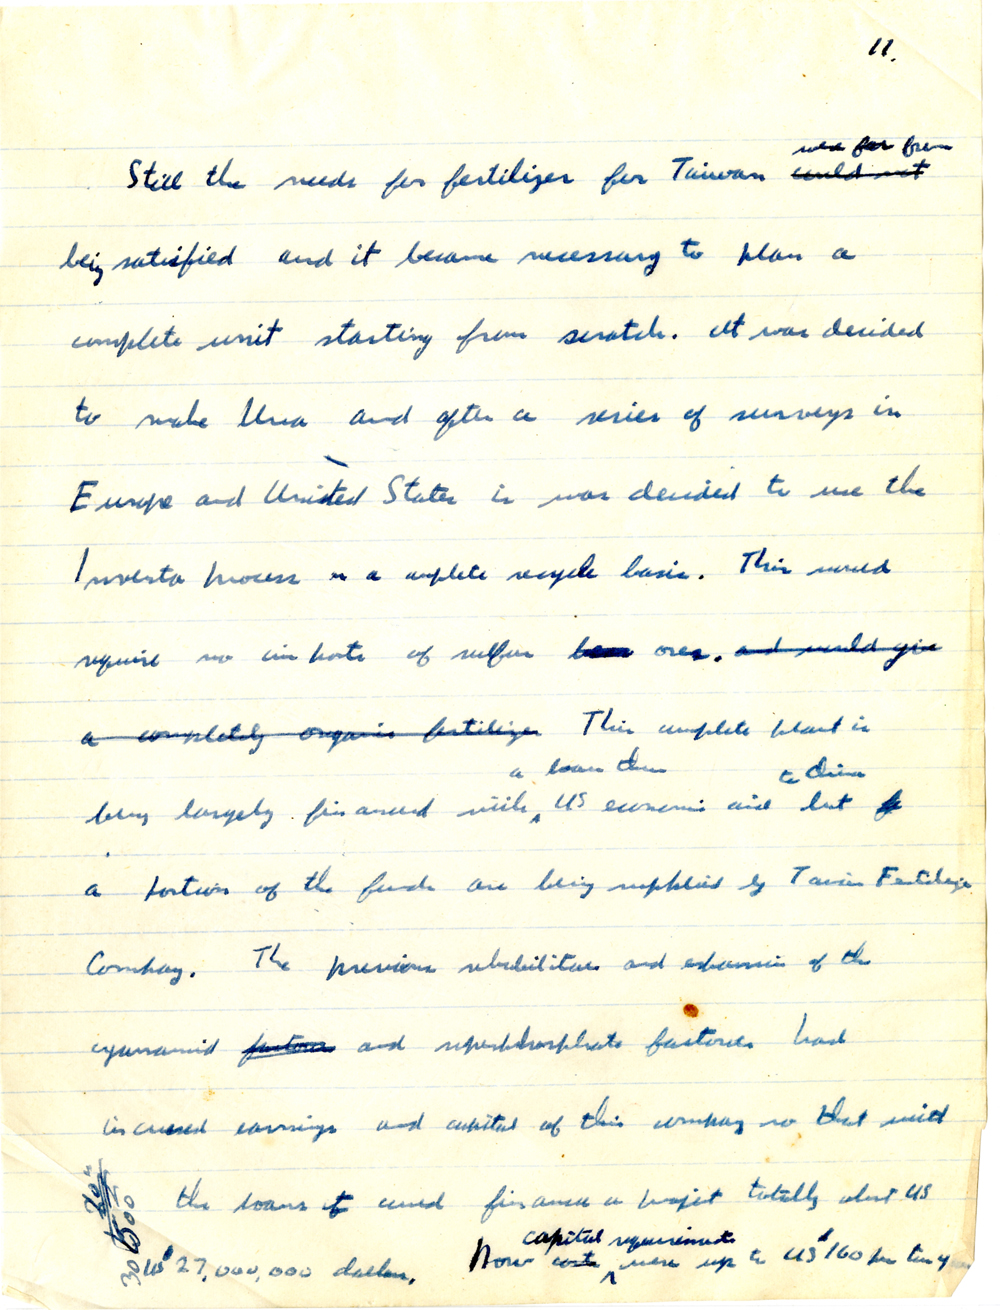 11.
were far from
Still the needs for fertilizer for Taiwan could not
being satisfied and it became necessary to plan a
complete unit starting from scratch. It was decided
to make Urea and after a series of surveys in
Europe and United States is was decided to use the
Inventa process on a complete recycle basis. This would
require no imports of sulfur ores. and would give
a completely organic fertilizer This complete plant is
a loan thru to China
being largely financed with US economic aid but
a portion of the funds are being supplied by Taiwan Fertilizer
Company. The previous rehabilitation and expansion of the
cyanamid factories and superphosphate factories had
increased earnings and capital of this company so that with
the loans it could finance a project totally about US
capital requirements
US$ 27,000,000 dollars. Now costs were up to US$160 per ton